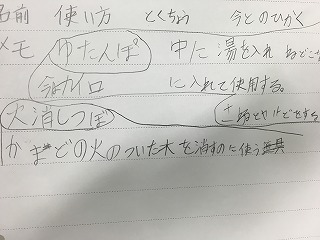 名前 使い方 とくちょう 今とのひかく
メモ ゆたんぽ 中に湯を入れ
今はカイロ に入れて使用する。
火消しつぼ
かまどの火のついた木を消すのに使う道具